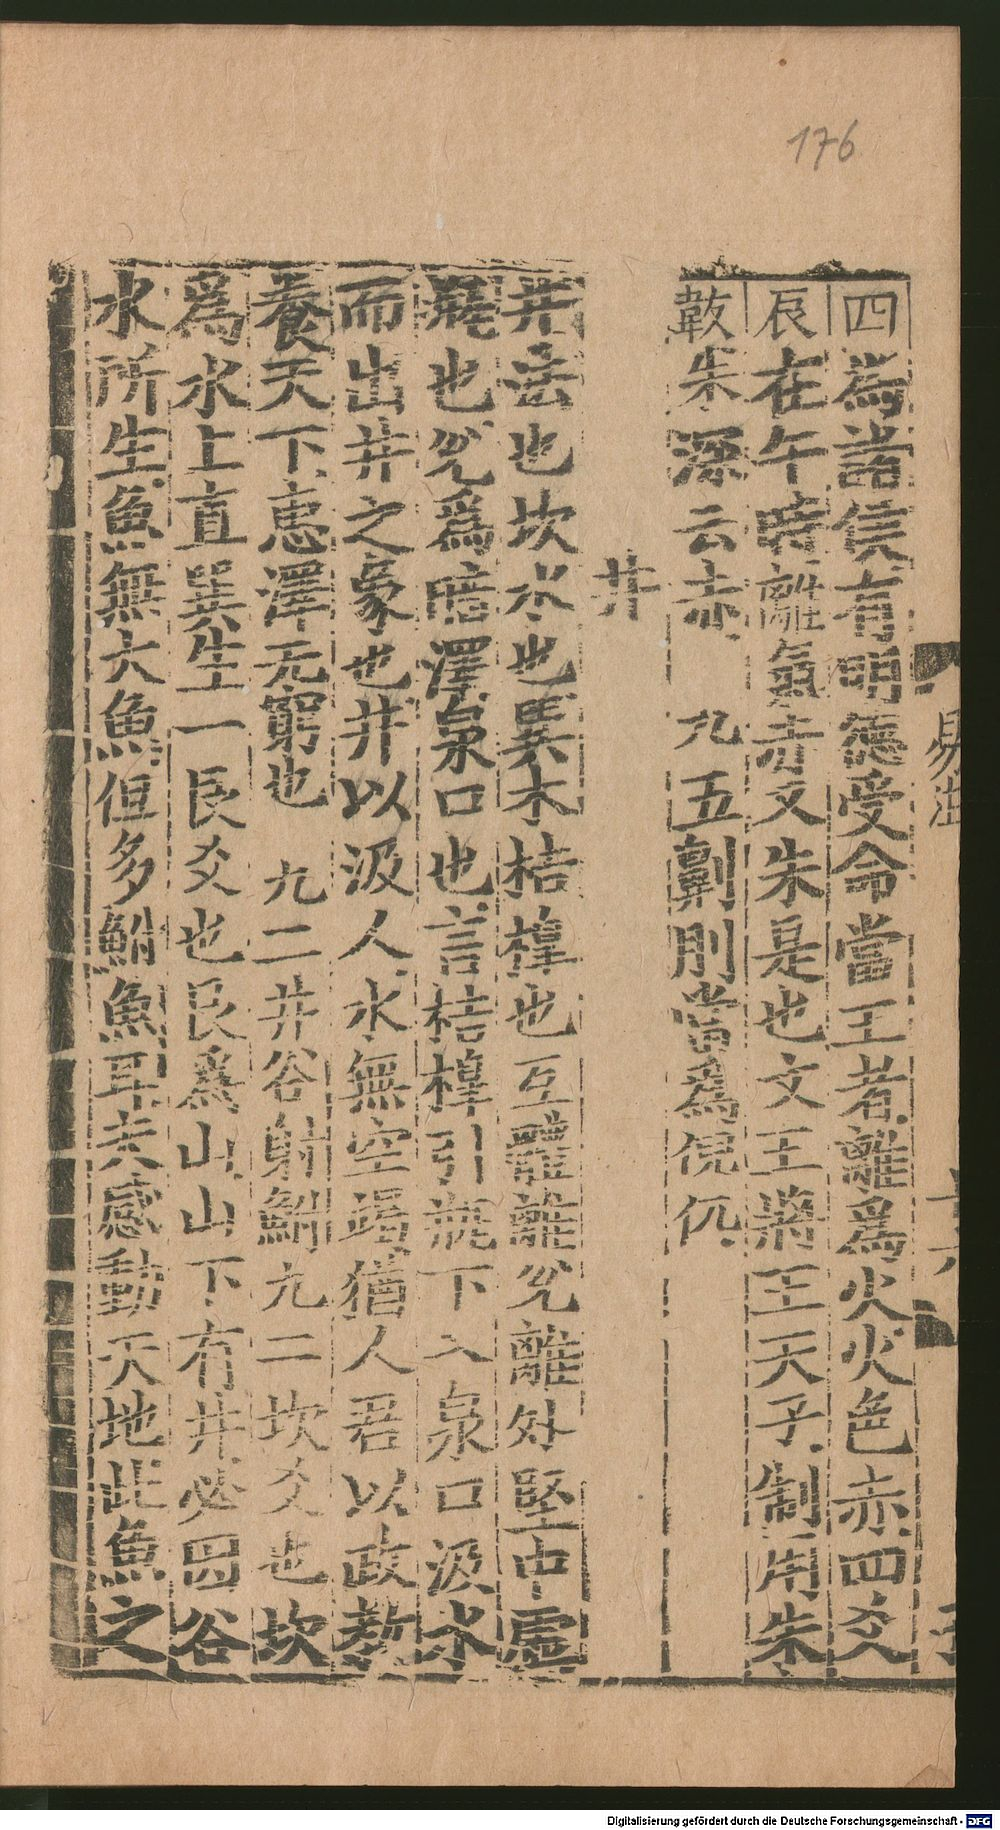 176
四為諸侯有明德受命當王者離爲火火色赤四爻
辰在午時離氣赤又朱是也文王將王天子制用朱
韍朱深云赤　九五劓刖當為倪㐳
井
井法也坎水也巽木桔橰也互離離兌離外堅中虛
瓶也兌爲暗澤泉口也言桔橰引瓶下入泉口汲水
而出井之象也井以汲人水無空竭猶人君以政教
養天下惠澤无窮也　九二井谷射鮒九二坎爻也坎
爲水上直巽生一艮爻也艮爲山山下有井必因谷
水所生魚無大魚但多鮒魚耳夫感動天地此魚之
易注
Digitalisierung gefördert durch die Deutsche Forschungsgemeinschaft - DFG